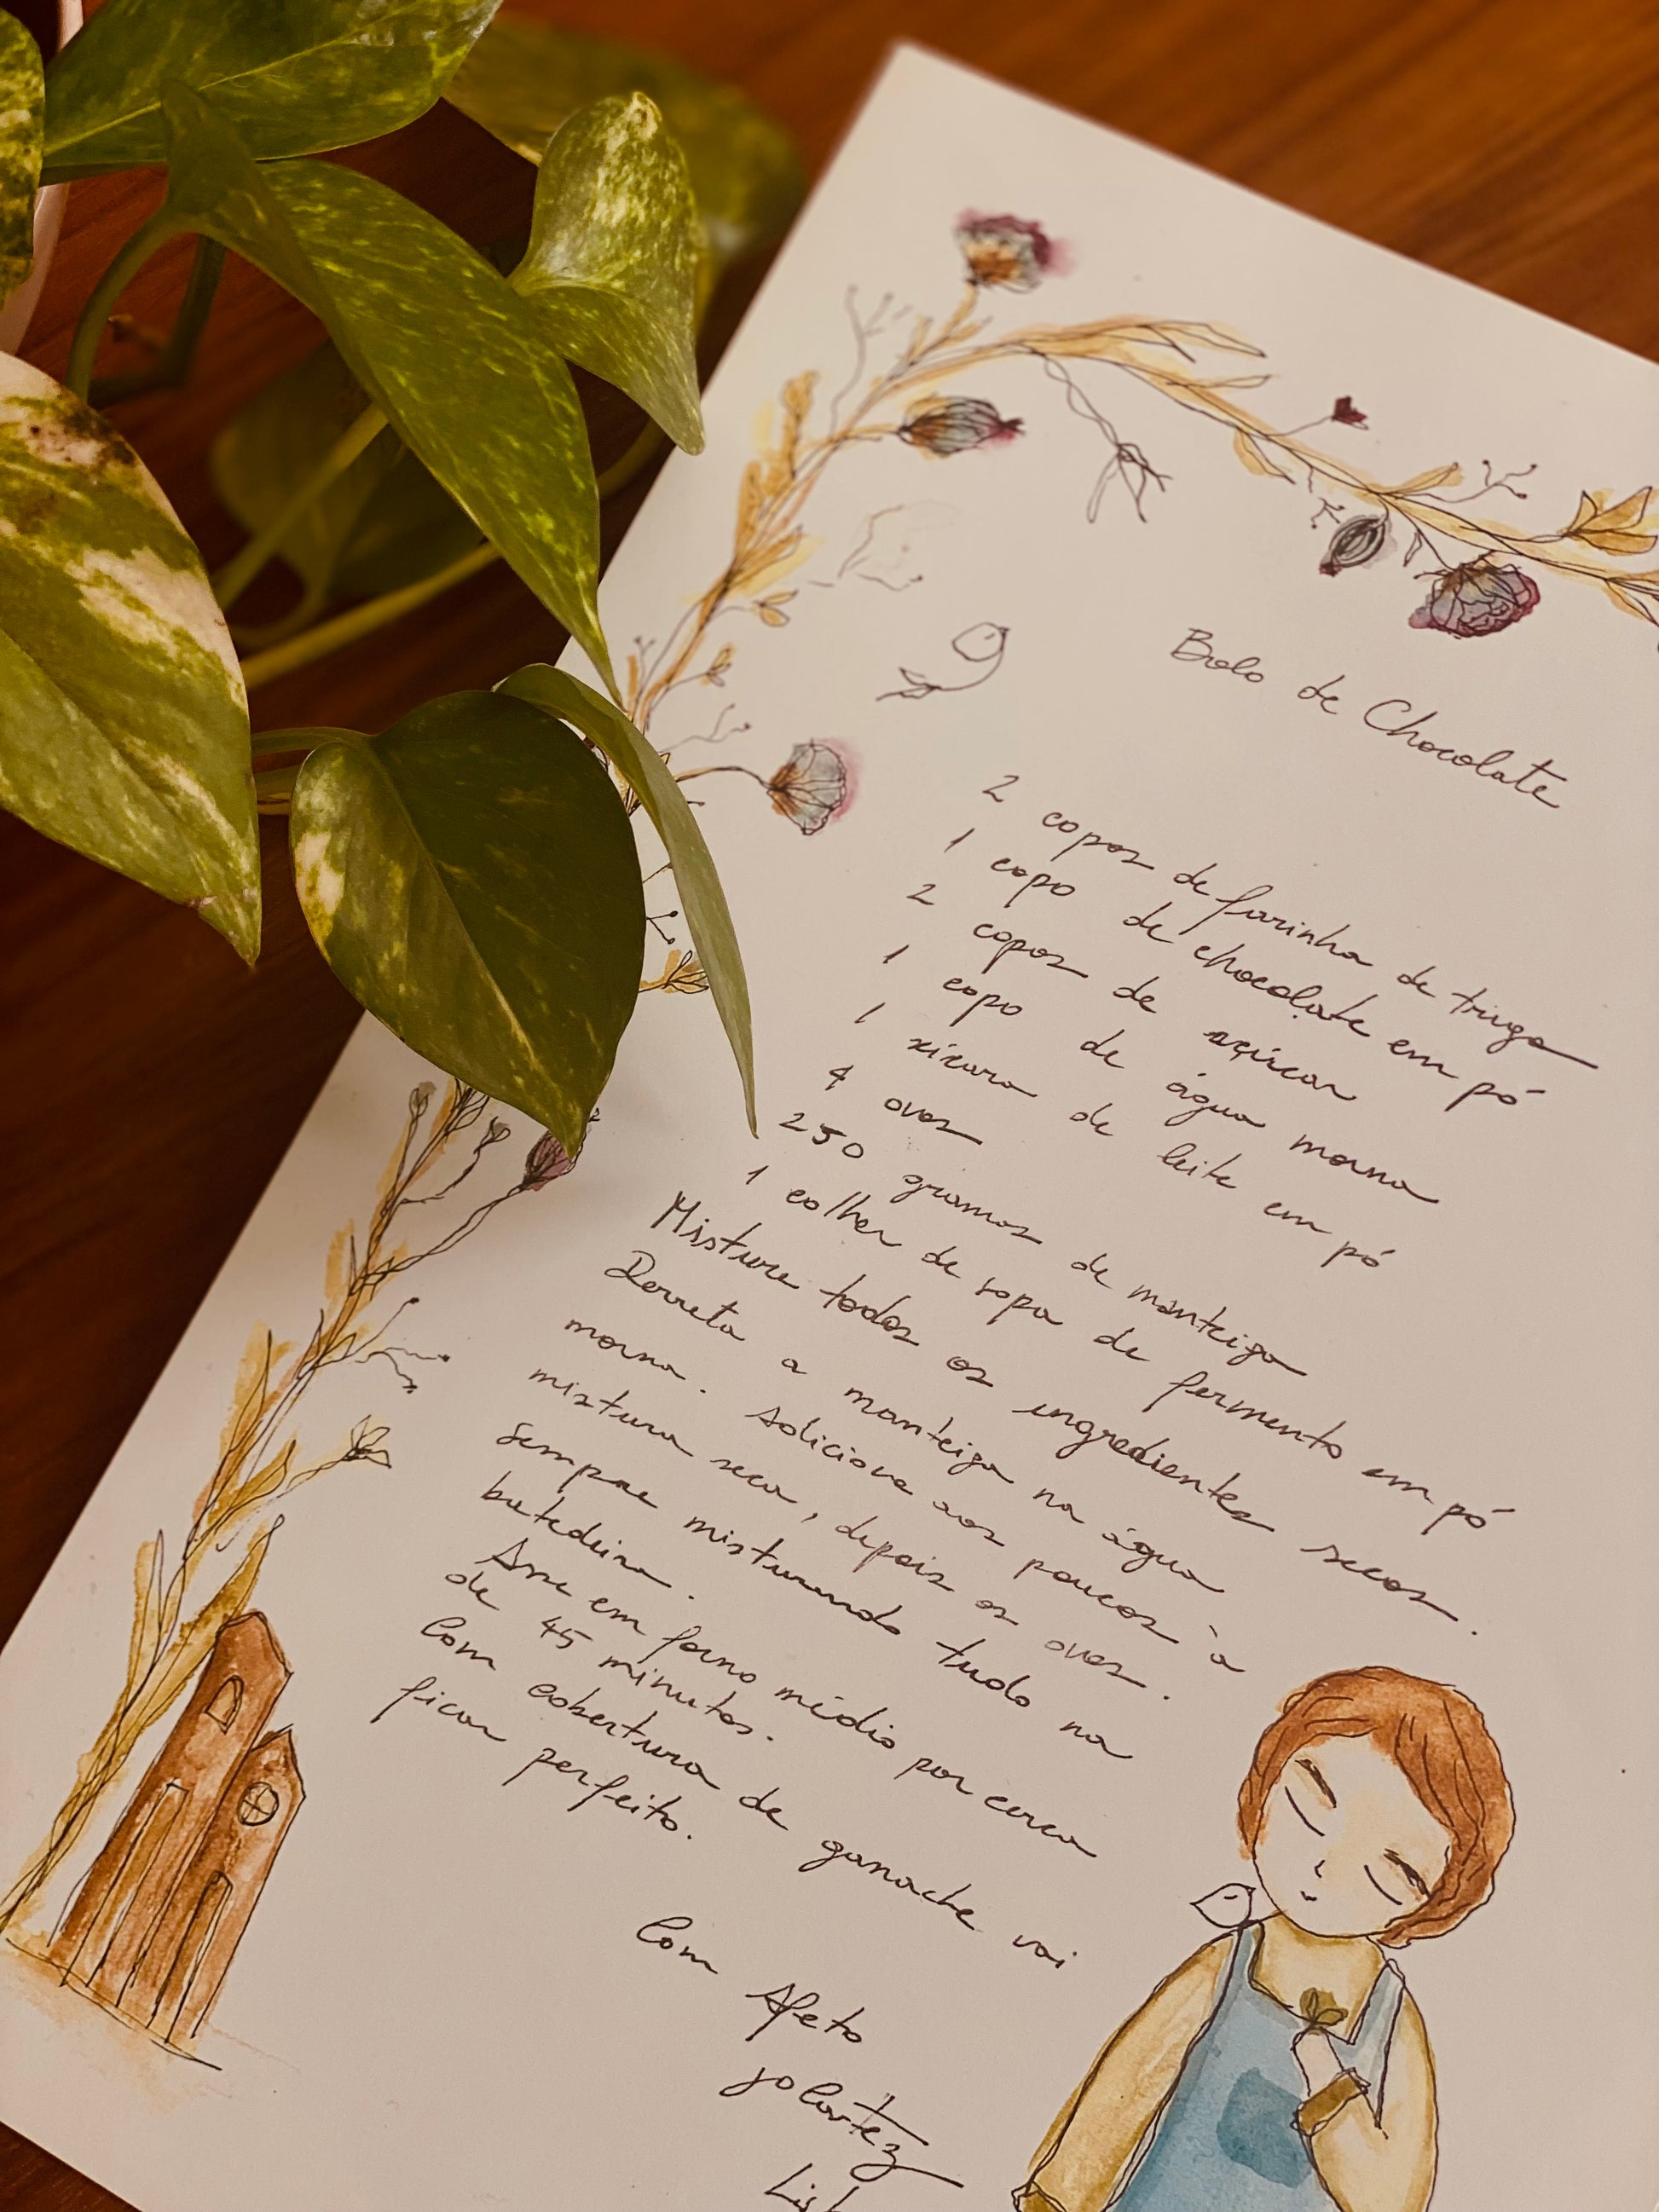 Bolo de Chocolate
2 copos de farinha de trigo
1 copo de chocolate em pó
2 copos de açúcar
1 copo de água morna
1 xícara de leite em pó
4 ovos
250 gramas de manteiga
1 colher de sopa de fermento em pó
Misture todos os ingredientes secos.
Derreta a manteiga na água
morna. Adicione aos poucos à
mistura seca, depois os ovos.
Sempre misturando tudo na
batedeira.
Asse em forno médio por cerca
de 45 minutos.
Com cobertura de ganache vai
ficar perfeito.
Com Afeto
Jo Cortez